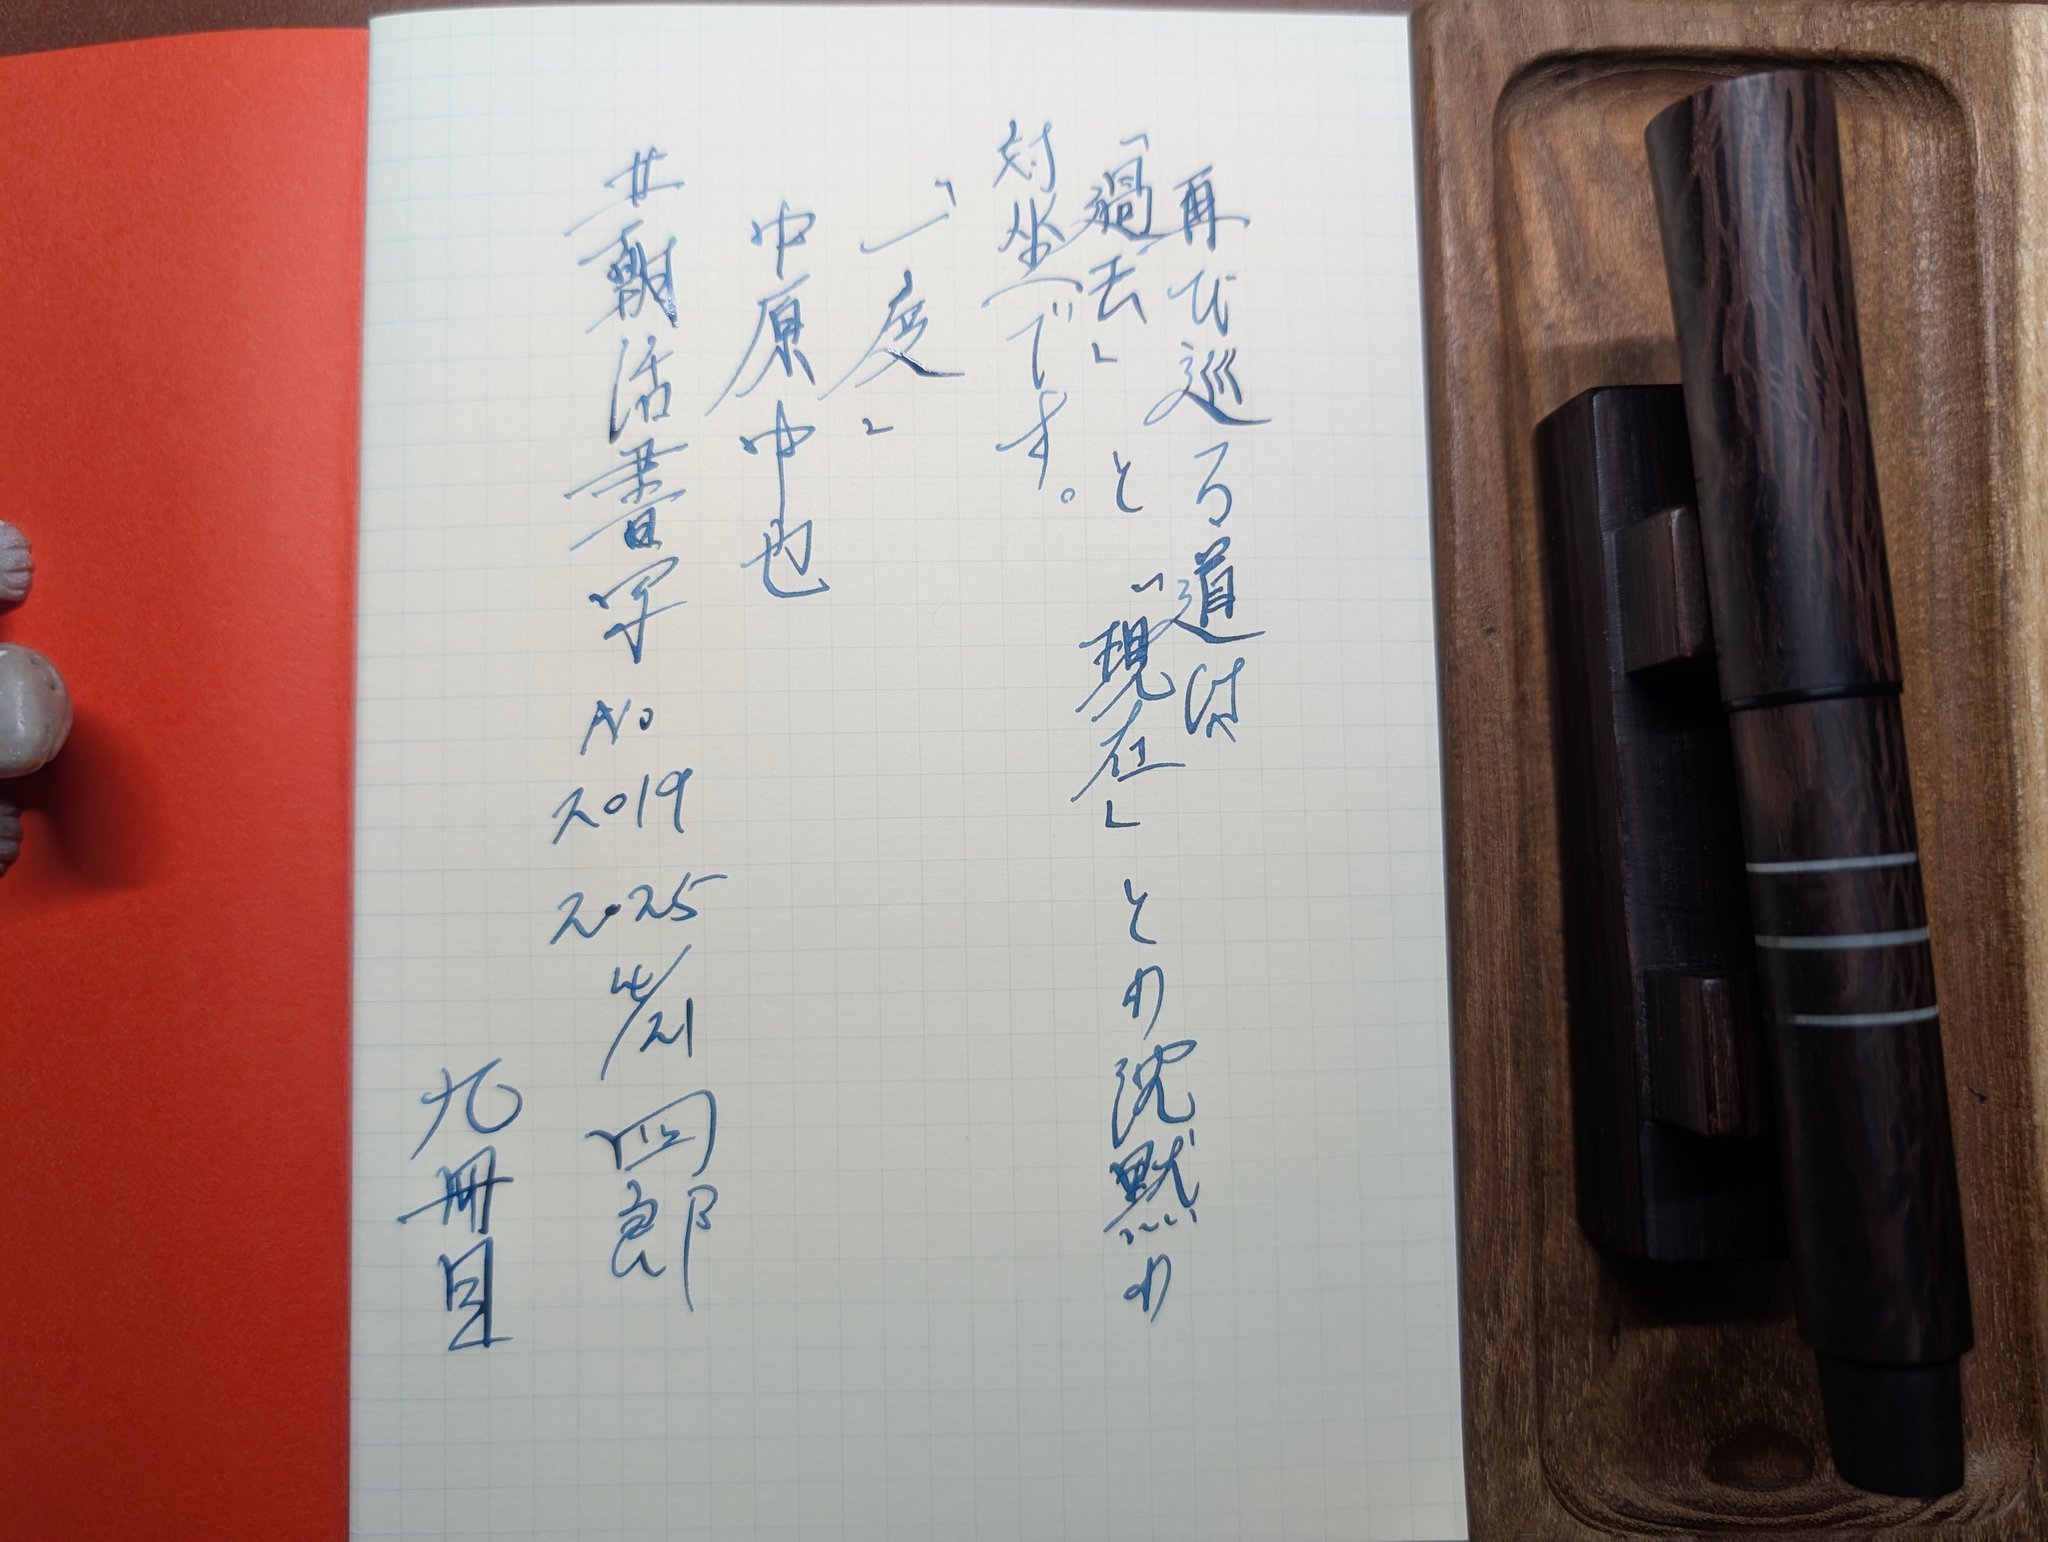 再び巡る道は
「過去」と「現在」との沈黙の
対坐です。
「一度」
中原中也
#朝活書写 No
2019
2025 4/21 四郎
九冊目